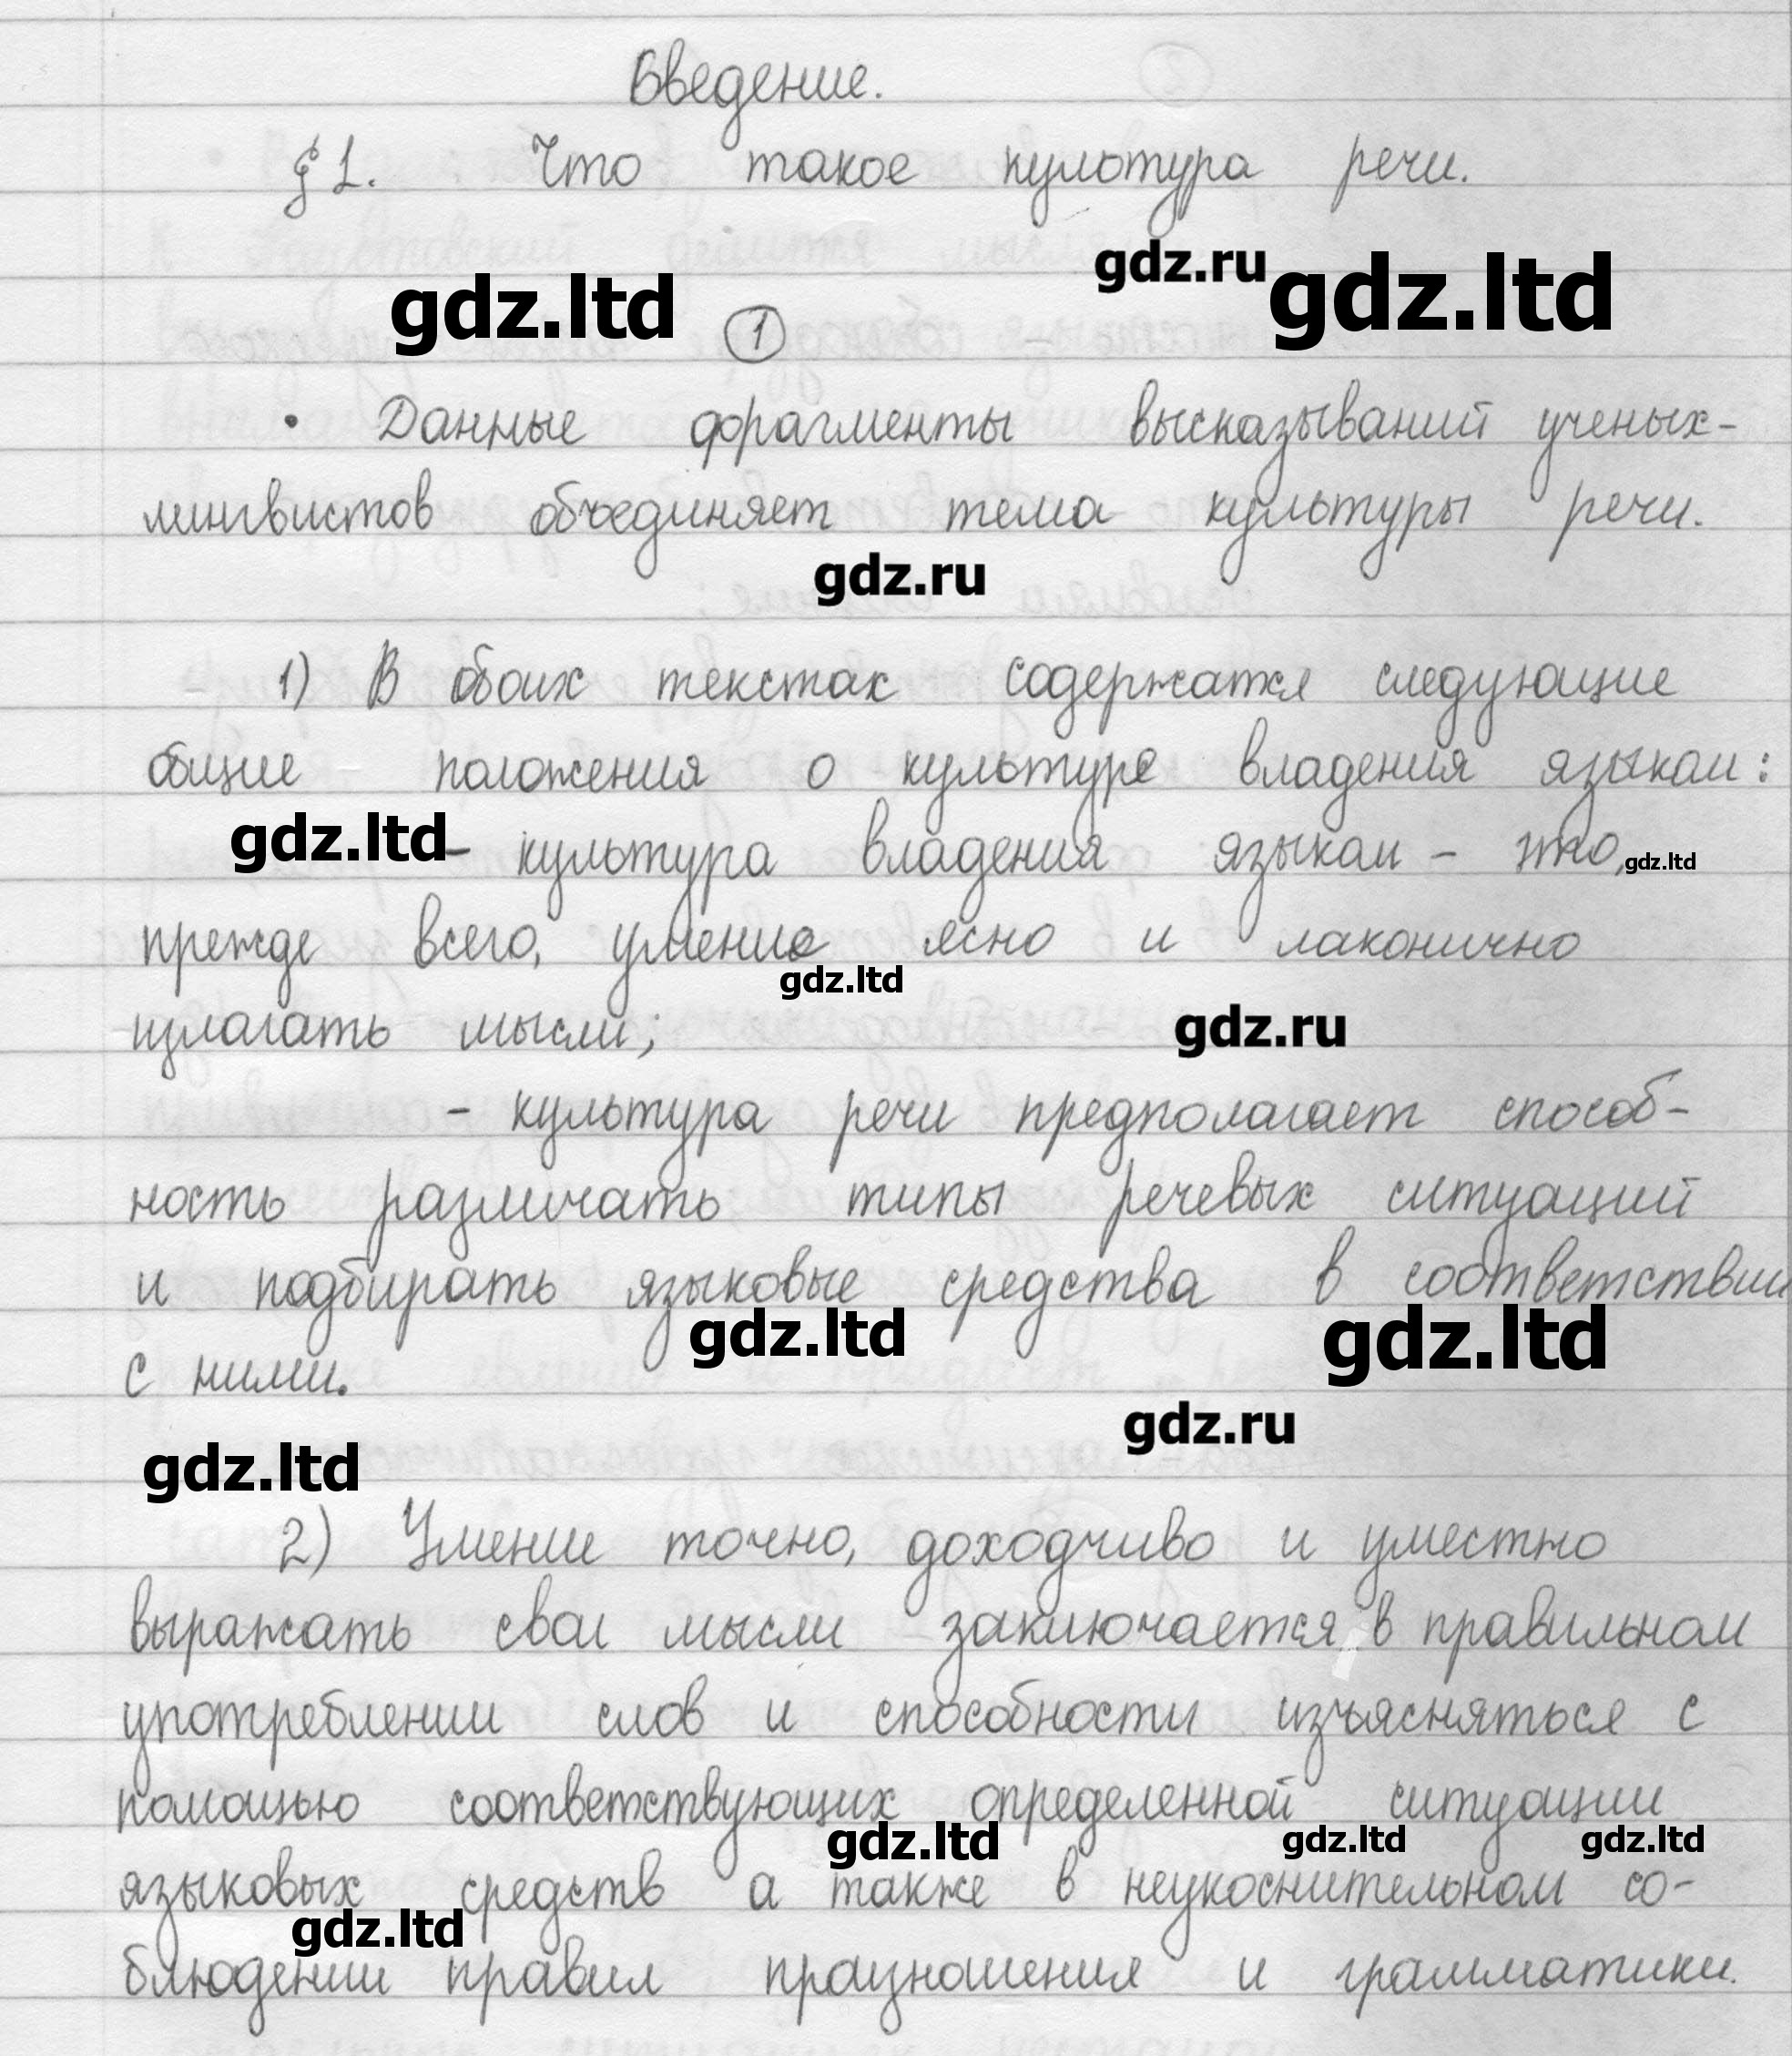 Введение.
§ 1. Что такое культура речи.
gdz.ru gdz.ltd
gdz.ltd 1
• Данные фрагменты высказываний ученых-
лингвистов объединяет тема культуры речи.
gdz.ru
1) В обоих текстах содержатся следующие
общие положения о культуре владения языком:
gdz.ltd - культура владения языком - это, gdz.ltd
прежде всего, умение ясно и лаконично
gdz.ltd
излагать мысли; gdz.ru
- культура речи предполагает способ-
ность различать типы речевых ситуаций
и подбирать языковые средства в соответствии
gdz.ltd gdz.ltd
с ними.
gdz.ru
gdz.ltd
2) Умение точно, доходчиво и уместно
выражать свои мысли заключается в правильном
употреблении слов и способности изъясняться с
помощью соответствующих определенной ситуации
gdz.ltd gdz.ltd gdz.ltd
языковых средств а также в неукоснительном со-
gdz.ltd
блюдении правил произношения и грамматики.